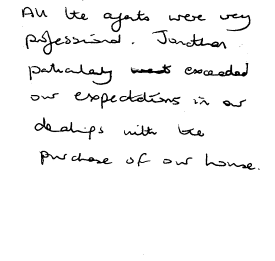 All the agents were very
professional. Jonathan
particularly exceeded
our expectations in our
dealings with the
purchase of our house.